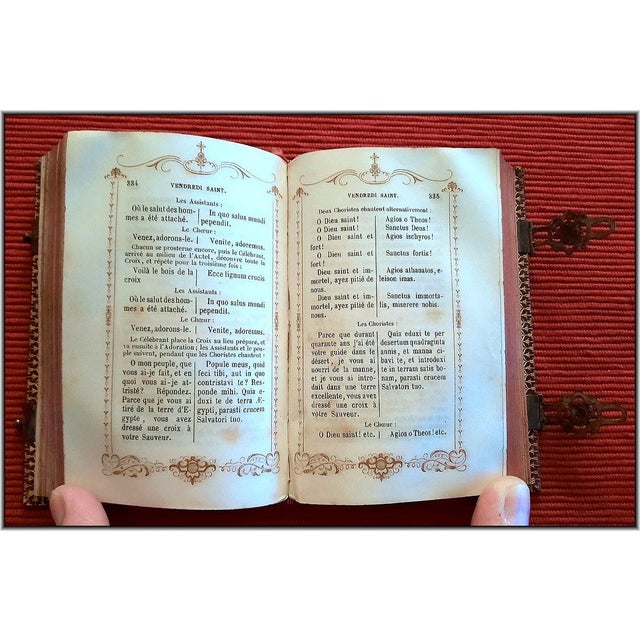 334
VENDREDI SAINT.
Les Assistants :
Où le salut des hom-
mes a été attaché.
In quo salus mundi
pependit.
Le Chœur :
Venez, adorons-le.
Venite, adoremus.
Chacun se prosterne encore, puis le Célébrant,
arrivé au milieu de l'Autel, découvre toute la
Croix, et répète pour la troisième fois :
Voilà le bois de la
croix
Ecce lignum crucis
Les Assistants :
Où le salut des hom-
mes a été attaché.
In quo salus mundi
pependit.
Le Chœur :
Venez, adorons-le.
Venite, adoremus.
Le Célébrant place la Croix au lieu préparé, et
va ensuite à l'Adoration ; les Assistants et le peu-
ple suivent, pendant que les Choristes chantent :
O mon peuple, que
vous ai-je fait, et en
quoi vous ai-je at-
tristé? Répondez.
Parce que je vous ai
tiré de la terre d'E-
gypte, vous avez
dressé une croix à
votre Sauveur.
Popule meus, quid
feci tibi, aut in quo
contristavi te? Res-
ponde mihi. Quia e-
duxi te de terra Æ-
gypti, parasti crucem
Salvatori tuo.
VENDREDI SAINT.
335
Deux Choristes chantent alternativement :
O Dieu saint!
O Dieu saint!
O Dieu saint et
fort!
O Dieu saint et
fort!
Dieu saint et im-
mortel, ayez pitié de
nous.
Dieu saint et im-
mortel, ayez pitié de
nous.
Agios o Theos!
Sanctus Deus!
Agios ischyros!
Sanctus fortis!
Agios athanatos, e-
leison imas.
Sanctus immorta-
lis, miserere nobis.
Les Choristes :
Parce que durant
quarante ans j'ai été
votre guide dans le
désert, que je vous ai
nourri de la manne,
et que je vous ai intro-
duit dans une terre
excellente, vous avez
dressé une croix à
votre Sauveur.
Quia eduxi te per
desertum quadraginta
annis, et manna ci-
bavi te, et introduxi
te in terram satis bo-
nam, parasti crucem
Salvatori tuo.
Le Chœur :
O Dieu saint! etc.
Agios o Theos! etc.